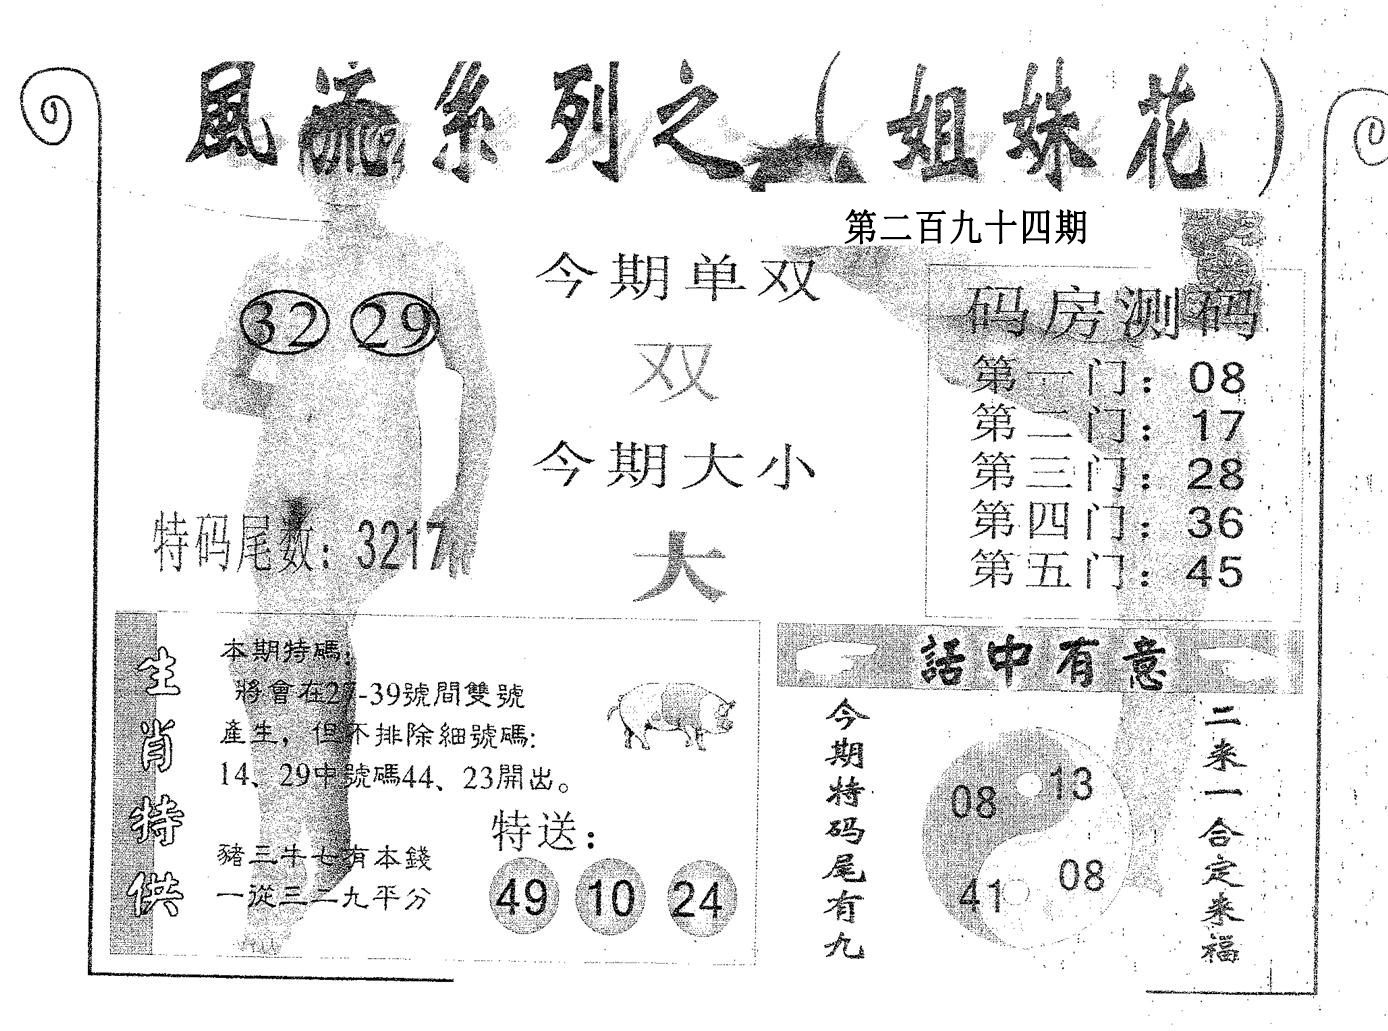 風流系列之（姐妹花）
第二百九十四期
今期单双
双
今期大小
大
32 29
特码尾数：3217
码房测码
第一门：08
第二门：17
第三门：28
第四门：36
第五门：45
生肖特供
本期特碼：
將會在27-39號間雙號
產生，但不排除細號碼：
14、29中號碼44、23開出。
豬三牛七有本錢
一從三二九平分
特送：
49 10 24
話中有意
今期特码尾有九
08 13
41 08
二来一合定来福